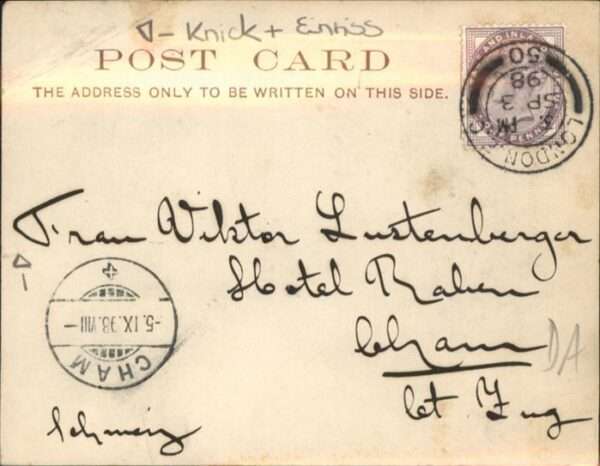 Knick + Einriss
POST CARD
THE ADDRESS ONLY TO BE WRITTEN ON THIS SIDE.
LONDON
PM
SP 3
98
50
Frau Viktor Lustenberger
Hotel Raben
Cham
Ct Zug
DA
CHAM
-5.IX.98.VIII-
Schweiz